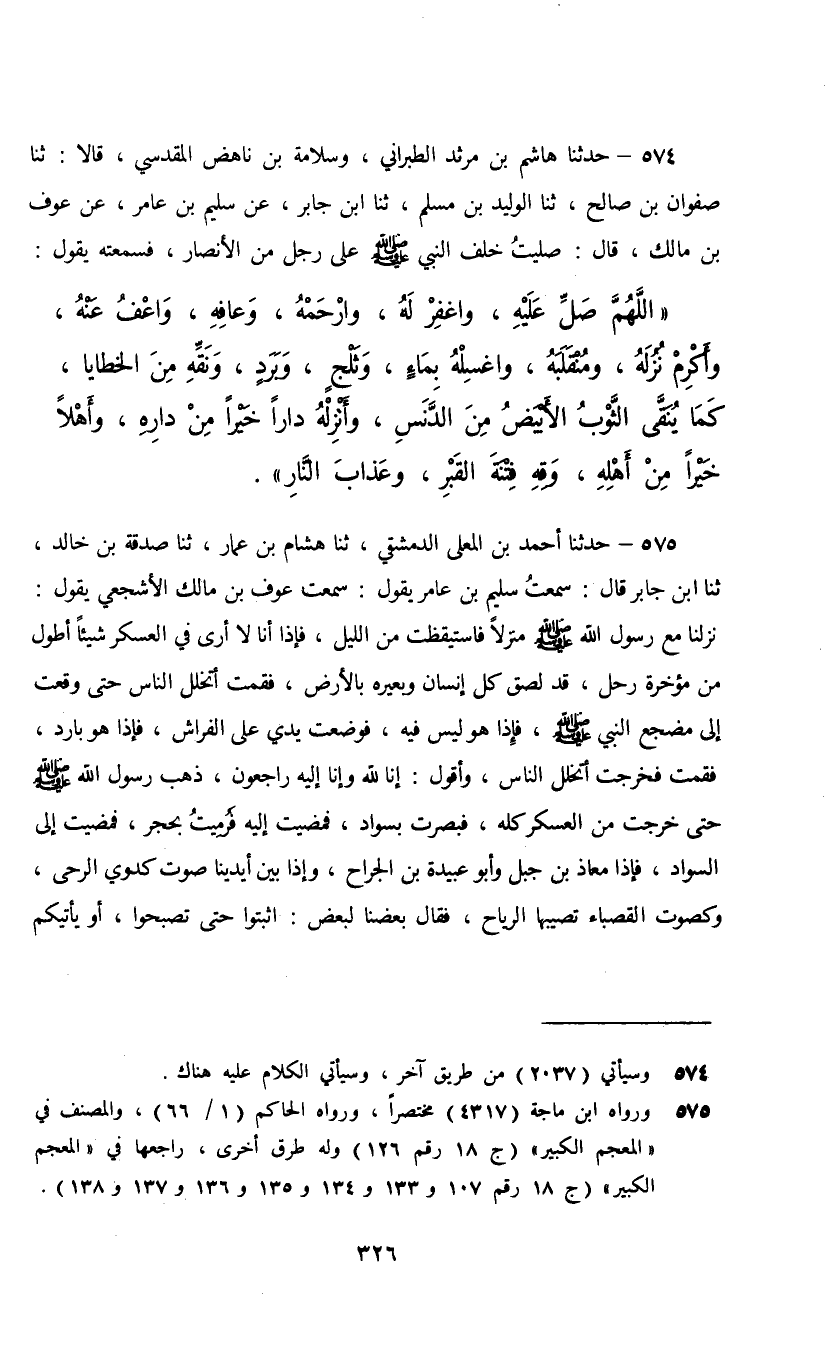 ٥٧٤ – حدثنا هاشم بن مرثد الطبراني ، وسلامة بن ناهض المقدسي ، قالا : ثنا
صفوان بن صالح ، ثنا الوليد بن مسلم ، ثنا ابن جابر ، عن سليم بن عامر ، عن عوف
بن مالك ، قال : صليتُ خلف النبي ﷺ على رجل من الأنصار ، فسمعته يقول :
« اللَّهُمَّ صَلِّ عَلَيْهِ ، واغفِرْ لَهُ ، وارْحَمْهُ ، وَعافِهِ ، وَاعْفُ عَنْهُ ،
وأَكْرِمْ نُزُلَهُ ، ومُنْقَلَبَهُ ، واغسِلْهُ بِمَاءٍ ، وَثَلْجٍ ، وَبَرَدٍ ، وَنَقِّهِ مِنَ الخطايا ،
كَمَا يُنَقَّى الثَّوْبُ الأَبْيَضُ مِنَ الدَّنَسِ ، وأَنْزِلْهُ داراً خَيْراً مِنْ دارِهِ ، وأَهْلاً
خَيْراً مِنْ أَهْلِهِ ، وَقِهِ فِتْنَةَ القَبْرِ ، وعَذابَ النَّارِ» .
٥٧٥ – حدثنا أحمد بن المعلى الدمشقي ، ثنا هشام بن عمار ، ثنا صدقة بن خالد ،
ثنا ابن جابر قال : سمعتُ سليم بن عامر يقول : سمعت عوف بن مالك الأشجعي يقول :
نزلنا مع رسول الله ﷺ منزلاً فاستيقظت من الليل ، فإذا أنا لا أرى في العسكر شيئاً أطول
من مؤخرة رحل ، قد لصق كل إنسان وبعيره بالأرض ، فقمت أتخلل الناس حتى وقعت
إلى مضجع النبي ﷺ ، فإذا هو ليس فيه ، فوضعت يدي على الفراش ، فإذا هو بارد ،
فقمت فخرجت أتخلل الناس ، وأقول : إنا لله وإنا إليه راجعون ، ذهب رسول الله ﷺ
حتى خرجت من العسكر كله ، فبصرت بسواد ، فمضيت إليه فَرُميتُ بحجر ، فمضيت إلى
السواد ، فإذا معاذ بن جبل وأبو عبيدة بن الجراح ، وإذا بين أيدينا صوت كدوي الرحى ،
وكصوت القصباء تصيبها الرياح ، فقال بعضنا لبعض : اثبتوا حتى تصبحوا ، أو يأتيكم
٥٧٤ وسيأتي (٢٠٣٧) من طريق آخر ، وسيأتي الكلام عليه هناك .
٥٧٥ ورواه ابن ماجة (٤٣١٧) مختصراً ، ورواه الحاكم (١ / ٦٦) ، والمصنف في
«المعجم الكبير» (ج ١٨ رقم ١٢٦) وله طرق أخرى ، راجعها في «المعجم
الكبير» (ج ١٨ رقم ١٠٧ و ١٣٣ و ١٣٤ و ١٣٥ و ١٣٦ و ١٣٧ و ١٣٨) .
٣٢٦